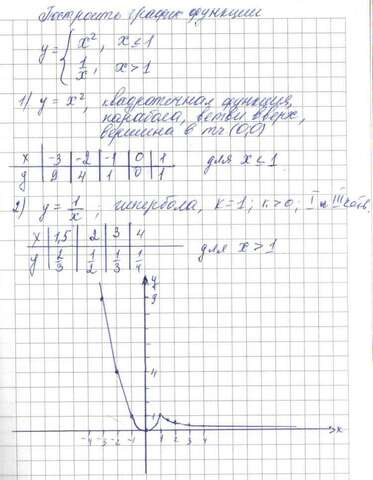 Построить график функции
y = { x², x ≤ 1
1/x, x > 1
1) y = x², квадратичная функция,
парабола, ветви вверх,
вершина в т. (0,0)
x | -3 | -2 | -1 | 0 | 1 для x ≤ 1
y | 9 | 4 | 1 | 0 | 1
2) y = 1/x ; гипербола, k=1; k>0, I и III четв.
x | 1,5 | 2 | 3 | 4
y | 2/3 | 1/2 | 1/3 | 1/4 для x > 1
y
9
4
1
-4 -3 -2 -1 0 1 2 3 4 x